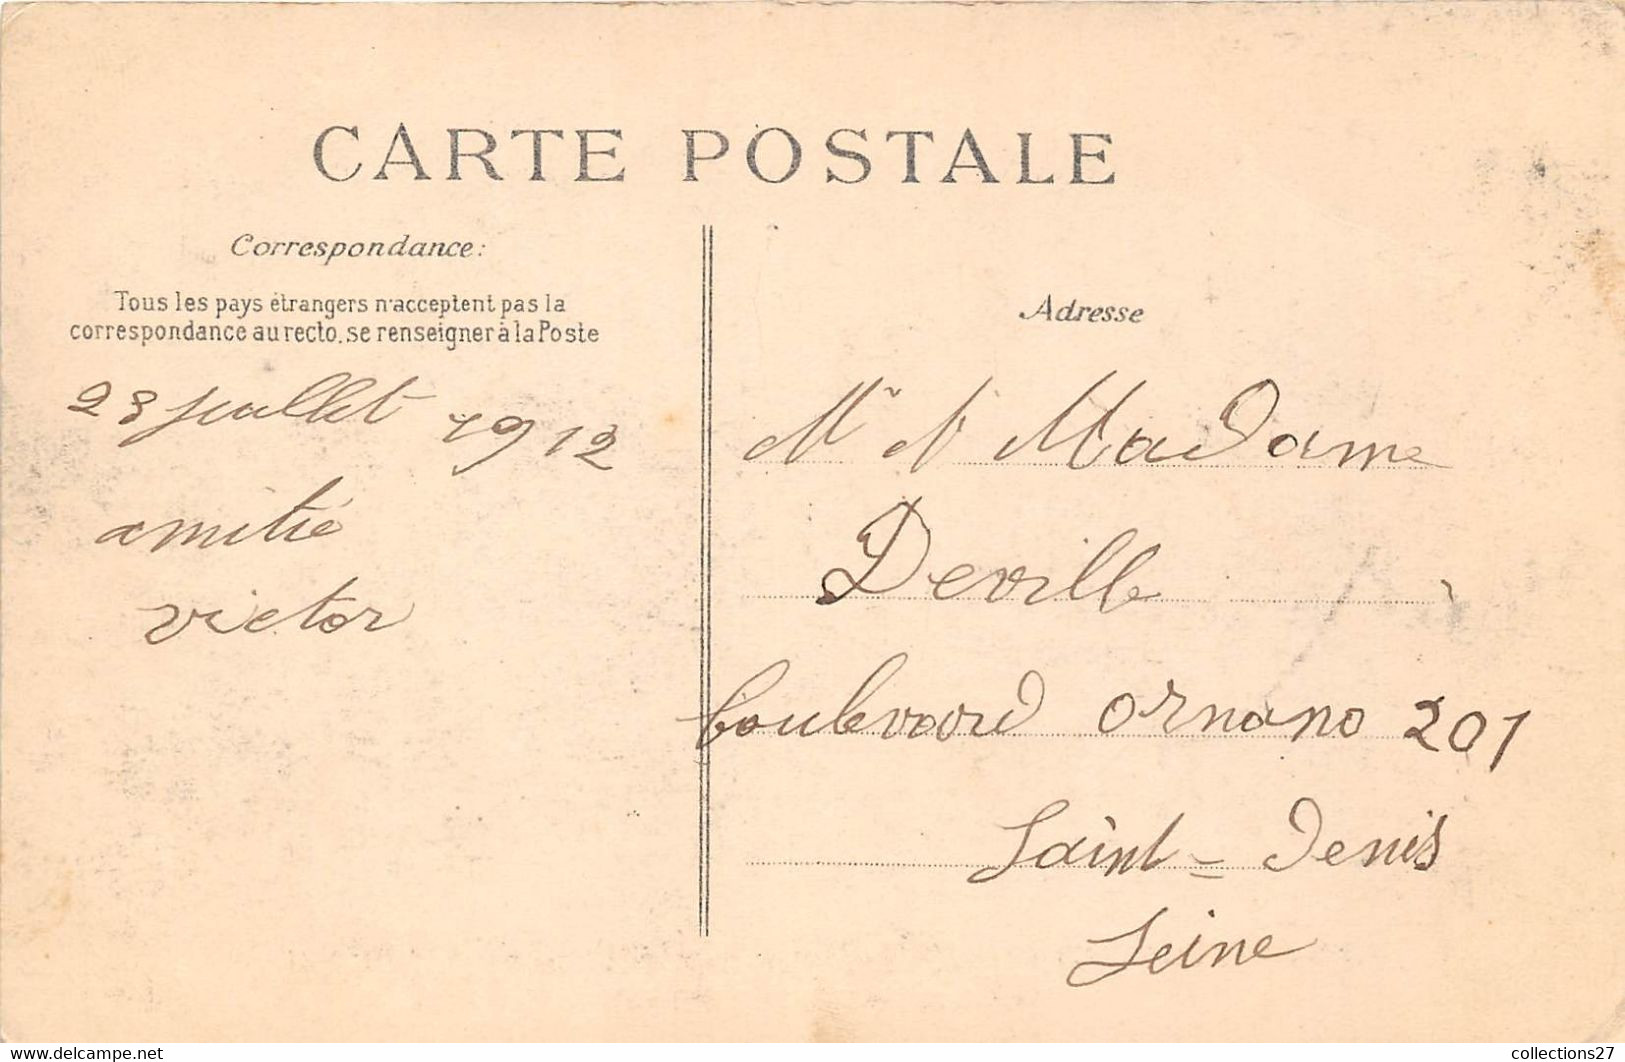 CARTE POSTALE
Correspondance:
Tous les pays étrangers n'acceptent pas la
correspondance au recto, se renseigner à la Poste
23 juillet 1912
amitié
victor
Adresse
Madame
Deville
boulevard ornano 201
Saint-Denis
Seine
www.delcampe.net
collections27